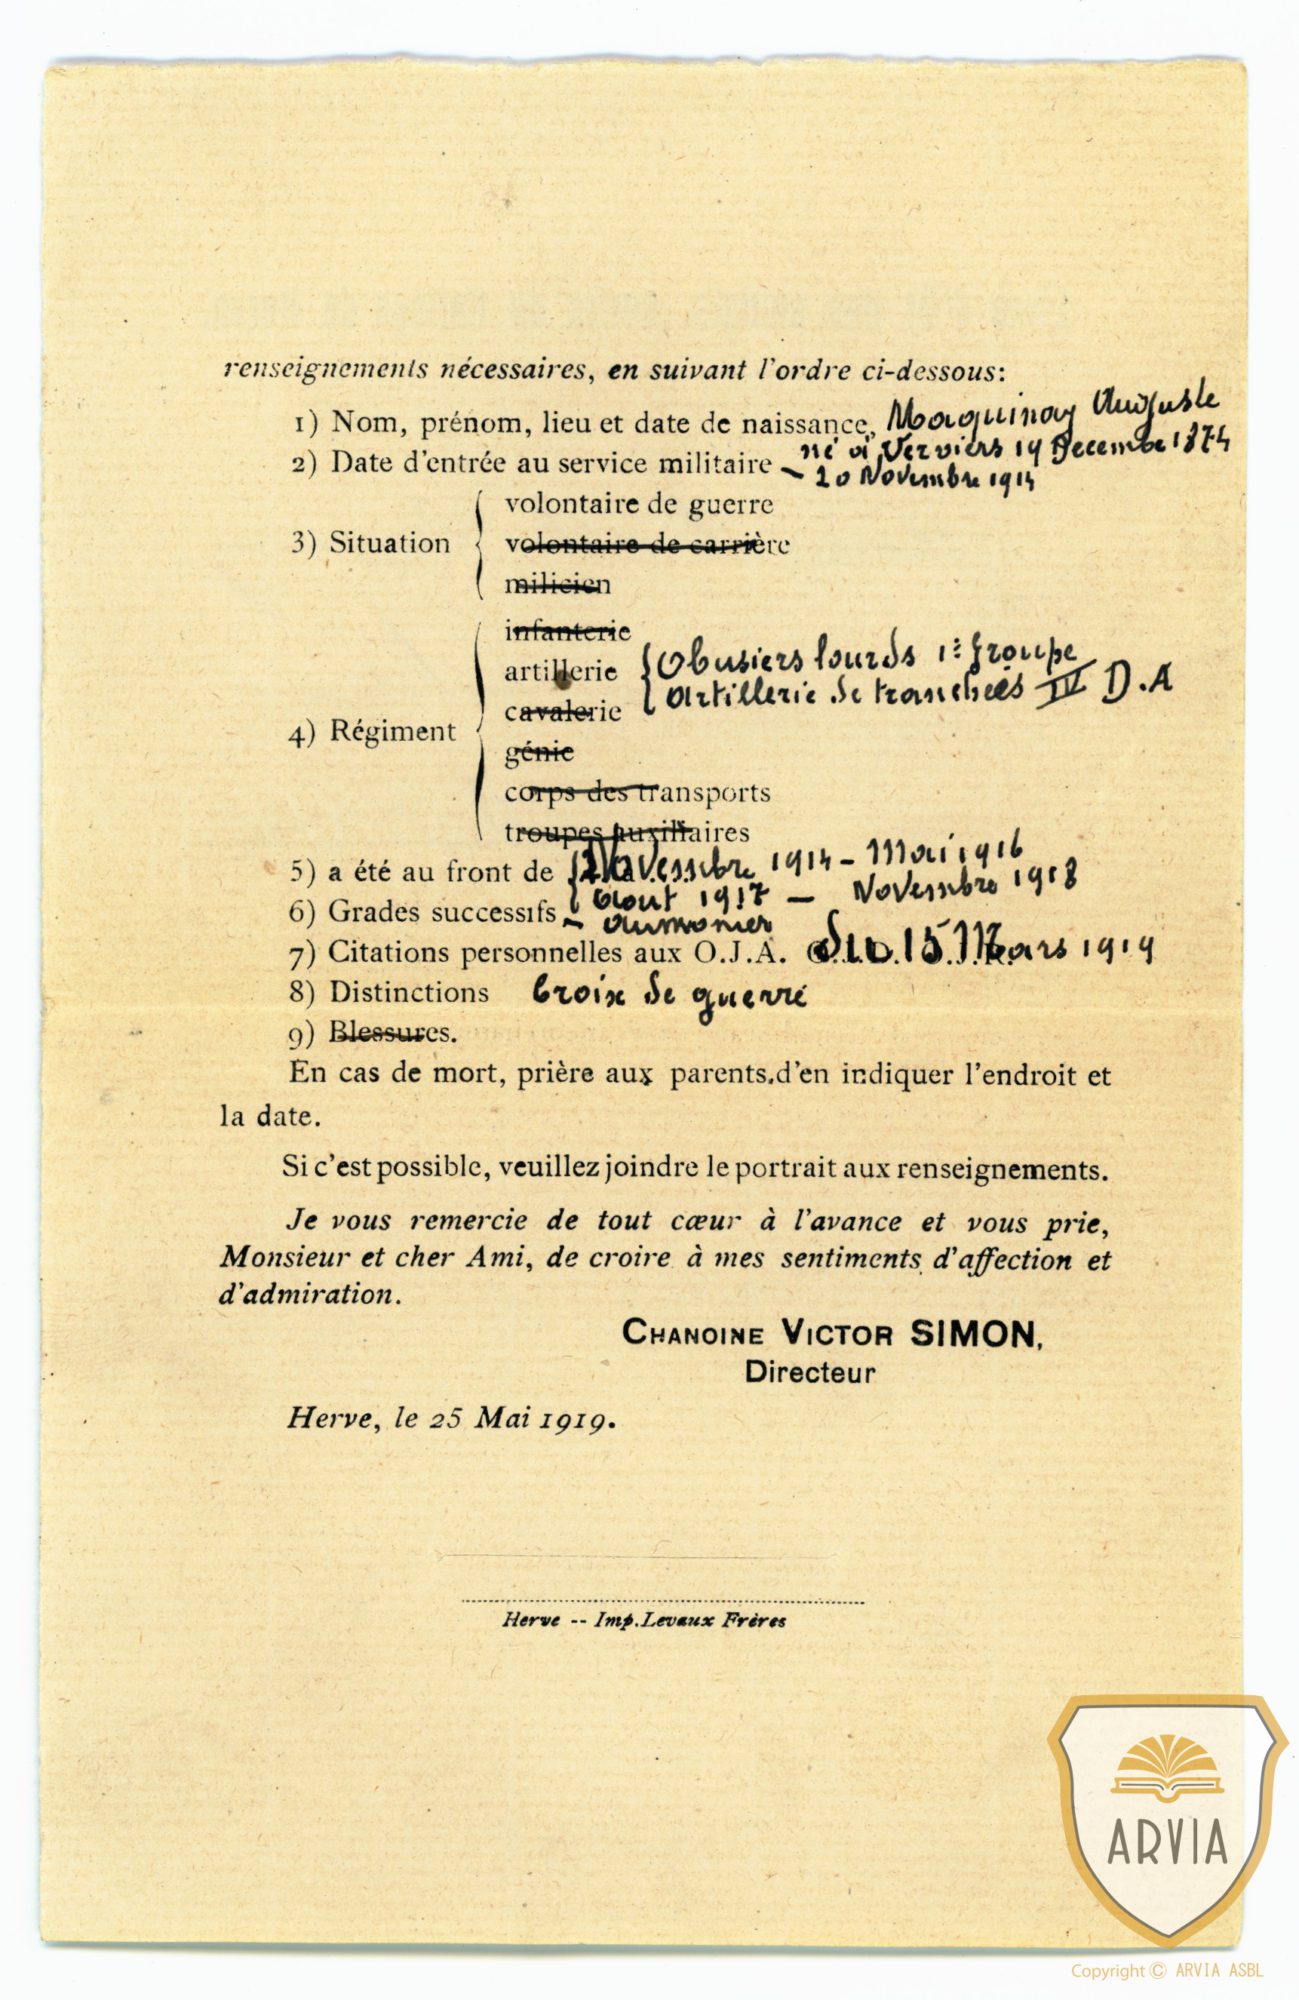 renseignements nécessaires, en suivant l'ordre ci-dessous:
1) Nom, prénom, lieu et date de naissance, Maquinay Auguste
né à Verviers 19 Decembre 1874
2) Date d'entrée au service militaire – 20 Novembre 1914
volontaire de guerre
3) Situation
volontaire de carrière
milicien
infanterie
artillerie
Obusiers lourds 1r groupe
Artillerie de tranchées IV D.A
cavalerie
4) Régiment
génie
corps des transports
troupes auxiliaires
5) a été au front de Novembre 1914 – Mai 1916
Aout 1917 – Novembre 1918
6) Grades successifs – Aumonier
7) Citations personnelles aux O.J.A. 15 Mars 1919
8) Distinctions Croix de guerre
9) Blessures.
En cas de mort, prière aux parents d'en indiquer l'endroit et
la date.
Si c'est possible, veuillez joindre le portrait aux renseignements.
Je vous remercie de tout cœur à l'avance et vous prie,
Monsieur et cher Ami, de croire à mes sentiments d'affection et
d'admiration.
CHANOINE VICTOR SIMON,
Directeur
Herve, le 25 Mai 1919.
Herve -- Imp. Levaux Frères
ARVIA
Copyright © ARVIA ASBL